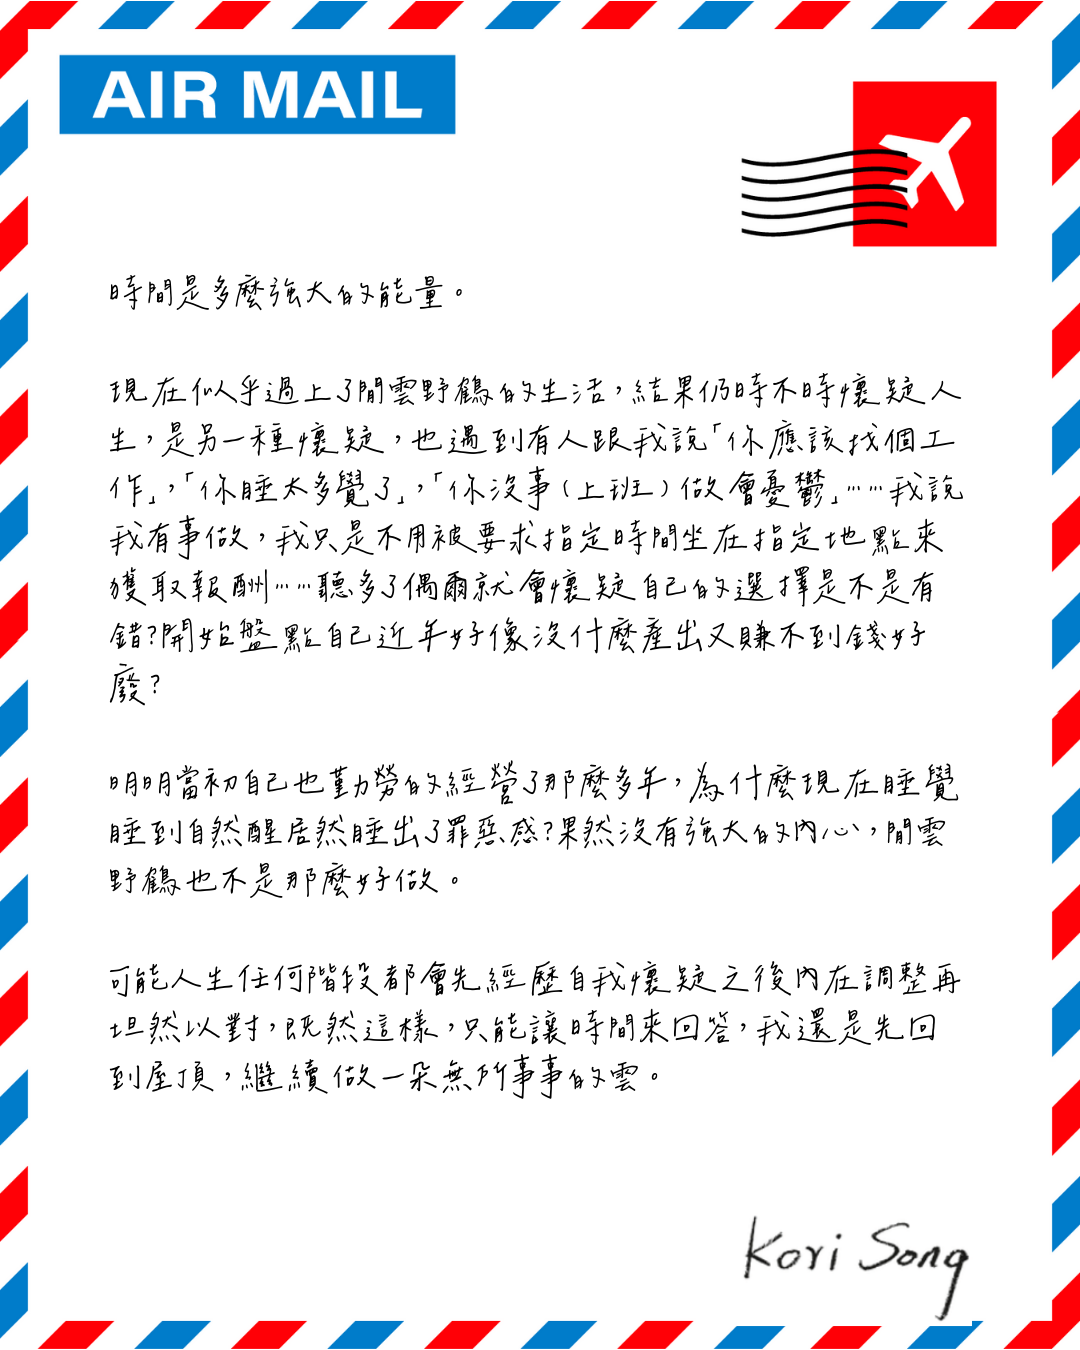 AIR MAIL
時間是多麼強大的能量。
現在似乎過上了閒雲野鶴的生活，結果仍時不時懷疑人
生，是另一種懷疑，也遇到有人跟我說「你應該找個工
作」，「你睡太多覺了」，「你沒事（上班）做會憂鬱」……我說
我有事做，我只是不用被要求指定時間坐在指定地點來
獲取報酬……聽多了偶爾就會懷疑自己的選擇是不是有
錯？開始盤點自己近年好像沒什麼產出又賺不到錢好
廢？
明明當初自己也勤勞的經營了那麼多年，為什麼現在睡覺
睡到自然醒居然睡出了罪惡感？果然沒有強大的內心，閒雲
野鶴也不是那麼好做。
可能人生任何階段都會先經歷自我懷疑之後內在調整再
坦然以對，既然這樣，只能讓時間來回答，我還是先回
到屋頂，繼續做一朵無所事事的雲。
Kori Song